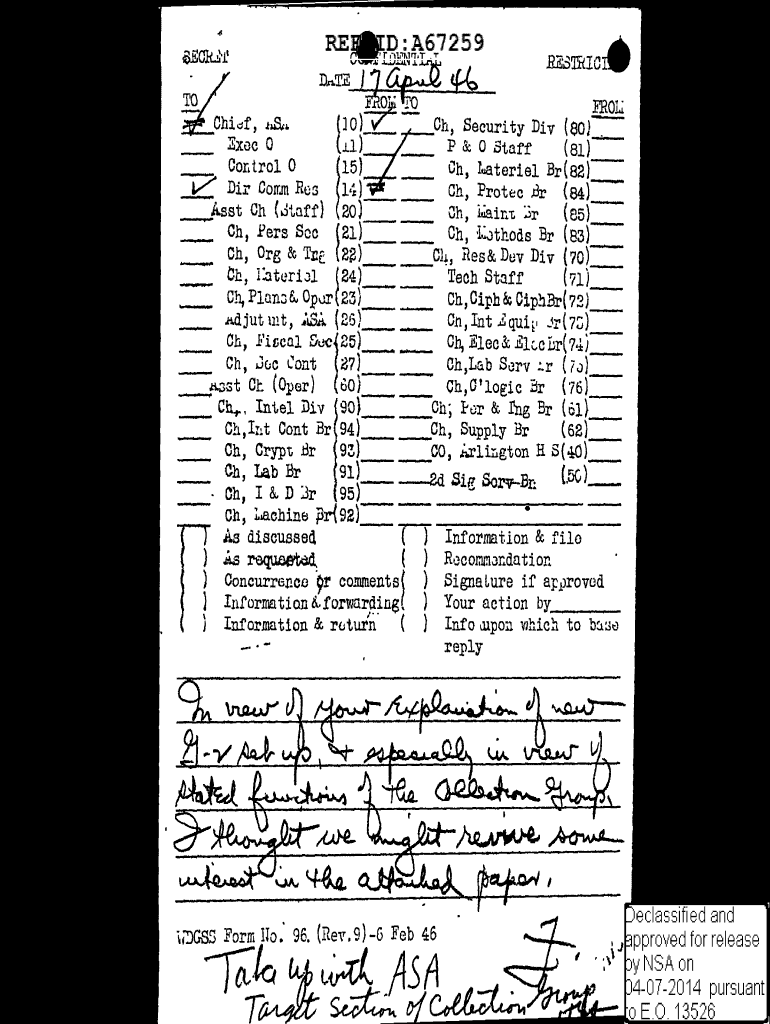 REF ID:A67259
SECRET CONFIDENTIAL RESTRICT
DATE 17 April 46
TO FROM TO FROM
Chief, ASA (10) Ch, Security Div (80)
Exec O (11) P & O Staff (81)
Control O (15) Ch, Materiel Br(82)
Dir Comm Res (14) Ch, Protec Br (84)
Asst Ch (Staff) (20) Ch, Maint Br (85)
Ch, Pers Sec (21) Ch, Methods Br (83)
Ch, Org & Tng (22) Ch, Res& Dev Div (70)
Ch, Materiel (24) Tech Staff (71)
Ch, Plans & Oper(23) Ch, Ciph & CiphBr(72)
Adjutant, ASA (26) Ch, Int Equip Br(73)
Ch, Fiscal Sec(25) Ch, Elec & Elec Br(74)
Ch, Sec Cont (27) Ch, Lab Serv Br (75)
Asst Ch (Oper) (60) Ch, C'logic Br (76)
Ch, Intel Div (90) Ch, Per & Tng Br (61)
Ch, Int Cont Br(94) Ch, Supply Br (62)
Ch, Crypt Br (93) CO, Arlington H S(40)
Ch, Lab Br (91) 2d Sig Serv Bn (50)
Ch, I & D Br (95)
Ch, Machine Br(92)
( ) As discussed ( ) Information & file
( ) As requested ( ) Recommendation
( ) Concurrence or comments( ) Signature if approved
( ) Information & forwarding( ) Your action by
( ) Information & return ( ) Info upon which to base
reply
In view of your explanation of new
G-2 set up, & especially in view of
stated functions of the Collection Group,
I thought we might revive some
interest in the attached paper.
WDGSS Form No. 96. (Rev.9)-6 Feb 46
F.
Take up with ASA
Target Section of Collection Group
Declassified and
approved for release
by NSA on
04-07-2014 pursuant
to E.O. 13526